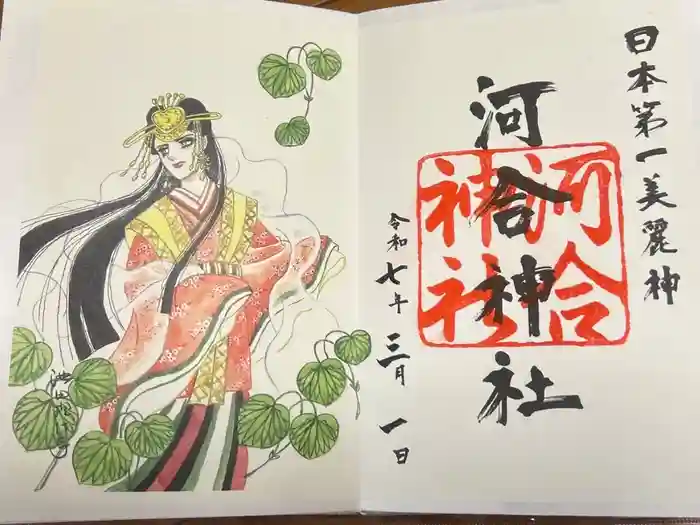 日本第一美麗神
河合神社
河合
神社
令和七年 三月 一日